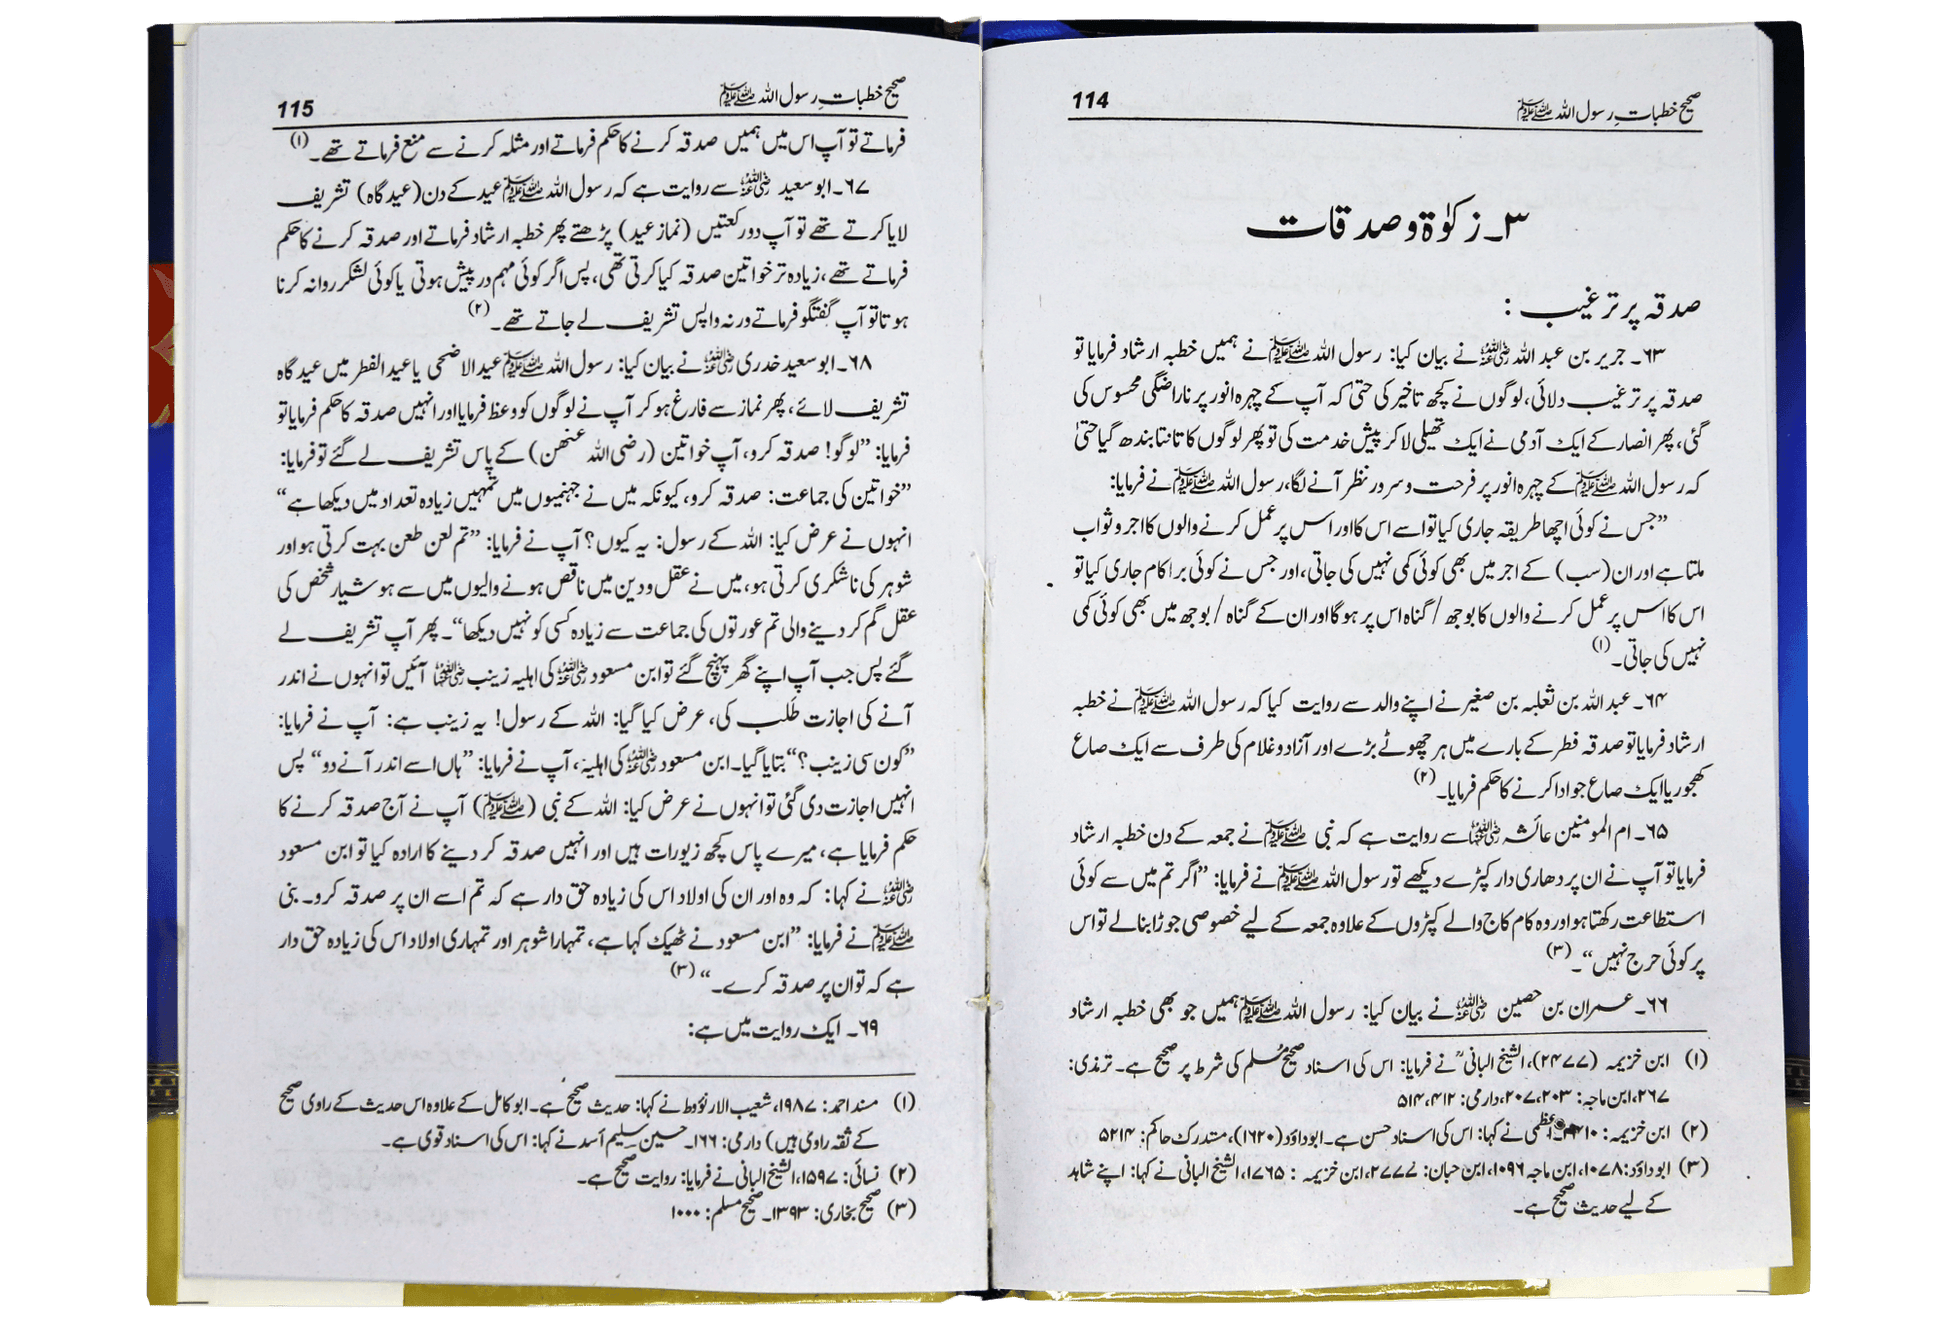 صحیح خطباتِ رسول اللہ ﷺ 114
۳۔ زکوٰۃ و صدقات
صدقہ پر ترغیب :
۶۳۔ جریر بن عبد اللہ رضی اللہ عنہ نے بیان کیا: رسول اللہ ﷺ نے ہمیں خطبہ ارشاد فرمایا تو
صدقہ پر ترغیب دلائی، لوگوں نے کچھ تاخیر کی حتیٰ کہ آپ کے چہرہ انور پر ناراضگی محسوس کی
گئی، پھر انصار کے ایک آدمی نے ایک تھیلی لا کر پیش خدمت کی تو پھر لوگوں کا تانتا بندھ گیا حتیٰ
کہ رسول اللہ ﷺ کے چہرہ انور پر فرحت و سرور نظر آنے لگا، رسول اللہ ﷺ نے فرمایا:
”جس نے کوئی اچھا طریقہ جاری کیا تو اسے اس کا اور اس پر عمل کرنے والوں کا اجر و ثواب
ملتا ہے اور ان (سب) کے اجر میں بھی کوئی کمی نہیں کی جاتی، اور جس نے کوئی برا کام جاری کیا تو
اس کا اس پر عمل کرنے والوں کا بوجھ / گناہ اس پر ہو گا اور ان کے گناہ / بوجھ میں بھی کوئی کمی
نہیں کی جاتی۔ (۱)
۶۴۔ عبد اللہ بن ثعلبہ بن صغیر نے اپنے والد سے روایت کیا کہ رسول اللہ ﷺ نے خطبہ
ارشاد فرمایا تو صدقہ فطر کے بارے میں ہر چھوٹے بڑے اور آزاد و غلام کی طرف سے ایک صاع
کھجور یا ایک صاع جو ادا کرنے کا حکم فرمایا۔ (۲)
۶۵۔ ام المومنین عائشہ رضی اللہ عنہا سے روایت ہے کہ نبی ﷺ نے جمعہ کے دن خطبہ ارشاد
فرمایا تو آپ نے ان پر دھاری دار کپڑے دیکھے تو رسول اللہ ﷺ نے فرمایا: ”اگر تم میں سے کوئی
استطاعت رکھتا ہو اور وہ کام کاج والے کپڑوں کے علاوہ جمعہ کے لیے خصوصی جوڑا بنا لے تو اس
پر کوئی حرج نہیں“۔ (۳)
۶۶۔ عمران بن حصین رضی اللہ عنہ نے بیان کیا: رسول اللہ ﷺ ہمیں جو بھی خطبہ ارشاد
(۱) ابن خزیمہ (۲۴۷۷)، الشیخ البانیؒ نے فرمایا: اس کی اسناد صحیح مسلم کی شرط پر صحیح ہے۔ ترمذی:
۲۶۷، ابن ماجہ: ۲۰۷،۲۰۳، دارمی: ۵۱۴،۴۱۲
(۲) ابن خزیمہ: اعظمی نے کہا: اس کی اسناد حسن ہے۔ ابوداؤد (۱۶۲۰)، مستدرک حاکم: ۵۲۱۴
(۳) ابوداؤد: ۱۰۷۸، ابن ماجہ ۱۰۹۶، ابن حبان: ۲۷۷۷، ابن خزیمہ : ۱۷۶۵، الشیخ البانی نے کہا: اپنے شاہد
کے لیے حدیث صحیح ہے۔
صحیح خطباتِ رسول اللہ ﷺ 115
فرماتے تو آپ اس میں ہمیں صدقہ کرنے کا حکم فرماتے اور مثلہ کرنے سے منع فرماتے تھے۔ (۱)
۶۷۔ ابو سعید رضی اللہ عنہ سے روایت ہے کہ رسول اللہ ﷺ عید کے دن (عید گاہ) تشریف
لایا کرتے تھے تو آپ دو رکعتیں (نماز عید) پڑھتے پھر خطبہ ارشاد فرماتے اور صدقہ کرنے کا حکم
فرماتے تھے، زیادہ تر خواتین صدقہ کیا کرتی تھی، پس اگر کوئی مہم درپیش ہوتی یا کوئی لشکر روانہ کرنا
ہوتا تو آپ گفتگو فرماتے ورنہ واپس تشریف لے جاتے تھے۔ (۲)
۶۸۔ ابو سعید خدری رضی اللہ عنہ نے بیان کیا: رسول اللہ ﷺ عید الاضحی یا عید الفطر میں عید گاہ
تشریف لائے، پھر نماز سے فارغ ہو کر آپ نے لوگوں کو وعظ فرمایا اور انہیں صدقہ کا حکم فرمایا تو
فرمایا: ”لوگو! صدقہ کرو، آپ خواتین (رضی اللہ عنھن) کے پاس تشریف لے گئے تو فرمایا:
”خواتین کی جماعت: صدقہ کرو، کیونکہ میں نے جہنمیوں میں تمہیں زیادہ تعداد میں دیکھا ہے“
انہوں نے عرض کیا: اللہ کے رسول: یہ کیوں؟ آپ نے فرمایا: ”تم لعن طعن بہت کرتی ہو اور
شوہر کی ناشکری کرتی ہو، میں نے عقل و دین میں ناقص ہونے والیوں میں سے ہوشیار شخص کی
عقل گم کر دینے والی تم عورتوں کی جماعت سے زیادہ کسی کو نہیں دیکھا“۔ پھر آپ تشریف لے
گئے پس جب آپ اپنے گھر پہنچ گئے تو ابن مسعود رضی اللہ عنہ کی اہلیہ زینب رضی اللہ عنہا آئیں تو انہوں نے اندر
آنے کی اجازت طلب کی، عرض کیا گیا: اللہ کے رسول! یہ زینب ہے: آپ نے فرمایا:
”کون سی زینب؟“ بتایا گیا۔ ابن مسعود رضی اللہ عنہ کی اہلیہ، آپ نے فرمایا: ”ہاں اسے اندر آنے دو“ پس
انہیں اجازت دی گئی تو انہوں نے عرض کیا: اللہ کے نبی (ﷺ) آپ نے آج صدقہ کرنے کا
حکم فرمایا ہے، میرے پاس کچھ زیورات ہیں اور انہیں صدقہ کر دینے کا ارادہ کیا تو ابن مسعود
رضی اللہ عنہ نے کہا: کہ وہ اور ان کی اولاد اس کی زیادہ حق دار ہے کہ تم اسے ان پر صدقہ کرو۔ بنی
ﷺ نے فرمایا: ”ابن مسعود نے ٹھیک کہا ہے، تمہارا شوہر اور تمہاری اولاد اس کی زیادہ حق دار
ہے کہ تو ان پر صدقہ کرے۔“ (۳)
۶۹۔ ایک روایت میں ہے:
(۱) مسند احمد: ۱۹۸۷، شعیب الارنؤوط نے کہا: حدیث صحیح ہے۔ ابو کامل کے علاوہ اس حدیث کے راوی صحیح
کے ثقہ راوی ہیں) دارمی: ۱۶۶۔ حسین سلیم أسد نے کہا: اس کی اسناد قوی ہے۔
(۲) نسائی: ۱۵۹۷، الشیخ البانی نے فرمایا: روایت صحیح ہے۔
(۳) صحیح بخاری: ۱۳۹۳۔ صحیح مسلم: ۱۰۰۰